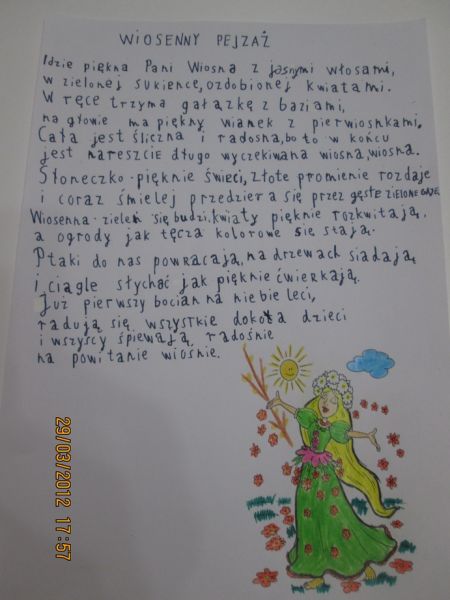 WIOSENNY PEJZAŻ
Idzie piękna Pani Wiosna z jasnymi włosami,
w zielonej sukience, ozdobionej kwiatami.
W ręce trzyma gałązkę z baziami,
na głowie ma piękny wianek z pierwiosnkami.
Cała jest śliczna i radosna, bo to w końcu
jest nareszcie długo wyczekiwana wiosna, wiosna.
Słoneczko-pięknie świeci, złote promienie rozdaje
i coraz śmielej przedziera się przez gęste ZIELONE GAJE.
Wiosenna-zieleń się budzi, kwiaty pięknie rozkwitają,
a ogrody jak tęcza kolorowe się stają.
Ptaki do nas powracają, na drzewach siadają
i ciągle słychać jak pięknie ćwierkają.
Już pierwszy bocian na niebie leci,
radują się wszystkie dokoła dzieci
i wszyscy śpiewają radośnie
na powitanie wiośnie.
29/03/2012 17:57